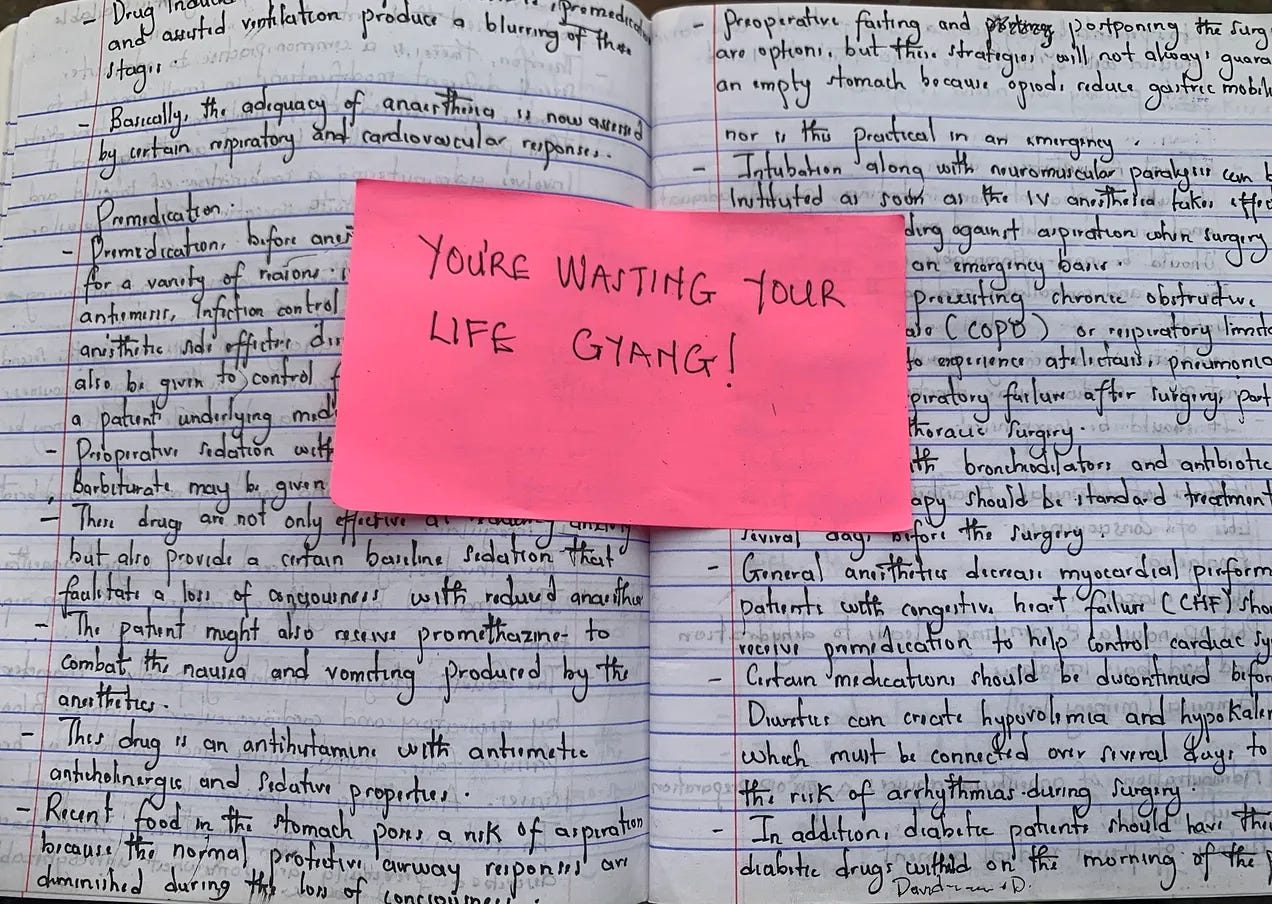 - Drug
and assisted ventilation produce a blurring of these
stages.
- Basically, the adequacy of anaesthesia is now assessed
by certain respiratory and cardiovascular responses.
Premedication.
- Premedication, before
for a variety of reasons.
antiemesis, Infection control
anesthetic side effects
also be given to control
a patient underlying
- Preoperative sedation with
Barbiturate may be given
- These drugs are not only effective
but also provide a certain baseline sedation that
facilitate a loss of with reduced
- The patient might also receive promethazine to
combat the nausea and vomiting produced by the
anesthetics.
- This drug is an antihistamine with antiemetic
anticholinergic and sedative properties.
- Recent food in the stomach poses a risk of aspiration
because the normal protective airway responses are
diminished during the loss of
YOU'RE WASTING YOUR
LIFE GYANG!
- Preoperative fasting and postponing the surg
are options, but these strategies will not always guara
an empty stomach because opiods reduce gastric mobil
nor is this practical in an emergency.
- Intubation along with neuromuscular paralysis can b
Instituted as soon as the IV anesthesia takes effec
ding against aspiration when surgery
an emergency basis.
preexisting chronic obstructive
(COPD) or respiratory
to experience atelectasis, pneumonia
piratory failure after surgery, part
thoracic surgery.
th bronchodilators and antibiotic
apy should be standard treatment
several days before the surgery.
- General anesthetics decrease myocardial perform
patients with congestive heart failure (CHF) shou
receive premedication to help control cardiac sy
- Certain medications should be discontinued befor
Diuretics can create hypovolemia and hypokalem
which must be connected over several days to
the risk of arrhythmias during surgery.
- In addition, diabetic patients should have their
diabetic drugs withheld on the morning of the